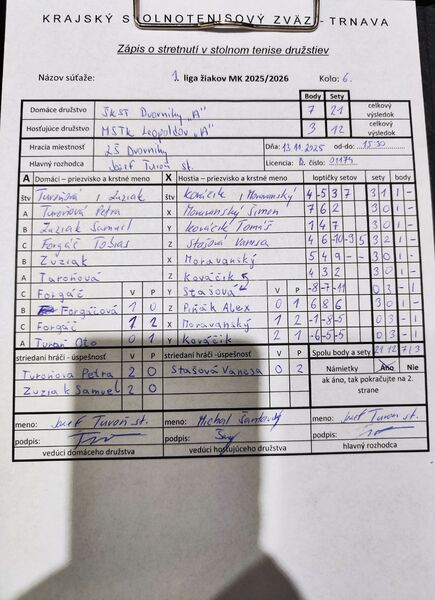 KRAJSKÝ STOLNOTENISOVÝ ZVÄZ - TRNAVA
Zápis o stretnutí v stolnom tenise družstiev
Názov súťaže: 1. liga žiakov MK 2025/2026 Kolo: 6.
Body Sety
Domáce družstvo ŠKST Dvorníky "A" 7 21 celkový výsledok
Hosťujúce družstvo MSTK Leopoldov "A" 3 12 celkový výsledok
Hracia miestnosť ZŠ Dvorníky Dňa: 13.11.2025 od-do: 15:30
Hlavný rozhodca Jozef Turoň st. Licencia D. číslo: 01174
A Domáci – priezvisko a krstné meno X Hostia – priezvisko a krstné meno loptičky setov sety body
štv Turoňová, Zuziak štv Kováčik, Moravanský 4 -5 3 7 3 1 1 -
A Turoňová Petra X Moravanský Šimon 7 6 2 3 0 1 -
B Zuziak Samuel Y Kováčik Tomáš 1 4 7 3 0 1 -
C Forgáč Tobias Z Stašová Vanesa 4 -6 10 -9 5 3 2 1 -
B Zuziak X Moravanský 5 4 9 - - 3 0 1 -
A Turoňová Z Kováčik 4 3 2 3 0 1 -
C Forgáč V P Y Stašová V P -8 -7 -11 0 3 - 1
B Forgáčová 1 0 Z Piňák Alex 0 1 6 8 6 3 0 1 -
C Forgáč 1 2 X Moravanský 1 2 -1 -8 -5 0 3 - 1
A Turan Oto 0 1 Y Kováčik 2 1 -6 -5 -5 0 3 - 1
striedaní hráči - úspešnosť V P striedaní hráči - úspešnosť V P Spolu body a sety 21 12 7 3
Turoňová Petra 2 0 Stašová Vanesa 0 2 Námietky Áno Nie
Zuziak Samuel 2 0 ak áno, tak pokračujte na 2. strane
meno: Jozef Turoň st. meno: Michal meno: Jozef Turoň st.
podpis: podpis:
vedúci domáceho družstva vedúci hosťujúceho družstva hlavný rozhodca